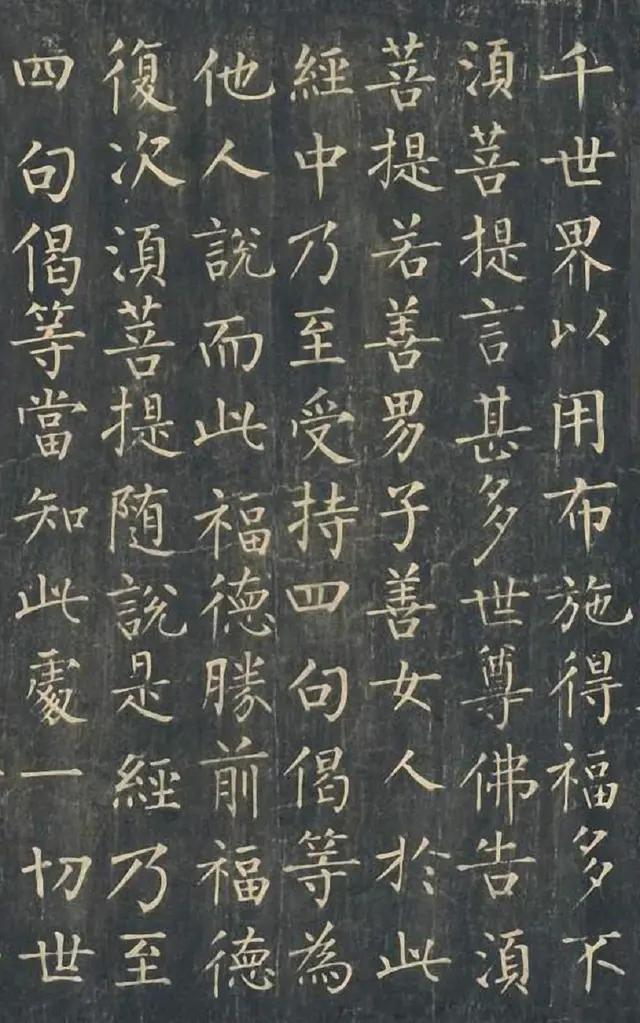 千世界以用布施得福多不
須菩提言甚多世尊佛告須
菩提若善男子善女人於此
經中乃至受持四句偈等為
他人說而此福德勝前福德
復次須菩提隨說是經乃至
四句偈等當知此處一切世